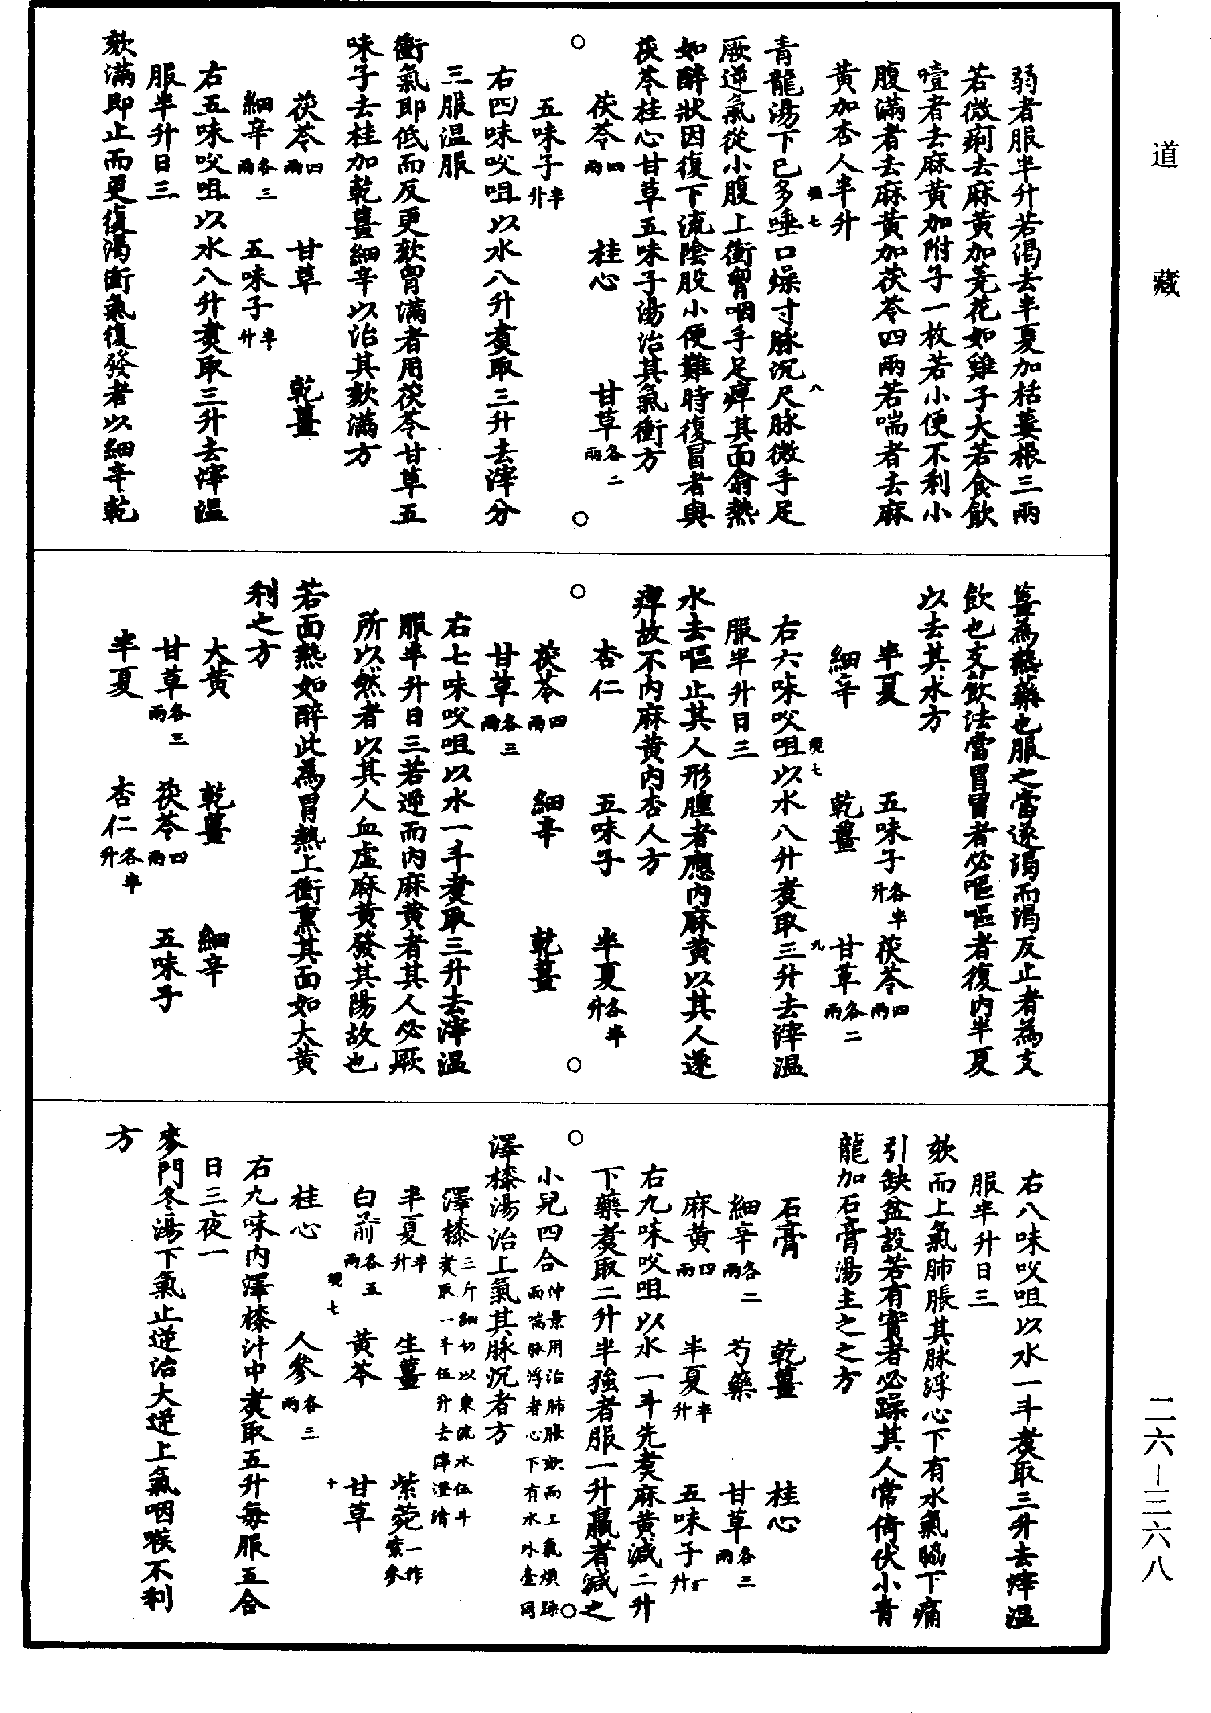 道藏
弱者服半升若渴去半夏加栝蔞根三兩
若微痢去麻黃加蕘花如雞子大若食飲
噎者去麻黃加附子一枚若小便不利小
腹滿者去麻黃加茯苓四兩若喘者去麻
黃加杏人半升
八
青龍湯下已多唾口燥寸脉沉尺脉微手足
厥逆氣從小腹上衝胷咽手足痺其面翕熱
如醉狀因復下流陰股小便難時復冒者與
茯苓桂心甘草五味子湯治其氣衝方
茯苓四兩 桂心 甘草各二兩
五味子半升
右四味㕮咀以水八升煑取三升去滓分
三服温服
衝氣即低而反更欬胷滿者用茯苓甘草五
味子去桂加乾薑細辛以治其欬滿方
茯苓四兩 甘草 乾薑
細辛各三兩 五味子半升
右五味㕮咀以水八升煑取三升去滓温
服半升日三
欬滿即止而更復渴衝氣復發者以細辛乾
薑為熱藥也服之當遂渴而渴反止者為支
飲也支飲法當冒冒者必嘔嘔者復内半夏
以去其水方
半夏 五味子各半升 茯苓四兩
細辛 乾薑 甘草各二兩
九
右六味㕮咀以水八升煑取三升去滓温
服半升日三
水去嘔止其人形腫者應内麻黃以其人遂
痺故不内麻黃内杏人方
杏仁 五味子 半夏各半升
茯苓四兩 細辛 乾薑
甘草各三兩
右七味㕮咀以水一斗煑取三升去滓温
服半升日三若逆而内麻黃者其人必厥
所以然者以其人血虛麻黃發其陽故也
若面熱如醉此為胃熱上衝熏其面如大黃
利之方
大黃 乾薑 細辛
甘草各三兩 茯苓四兩 五味子
半夏 杏仁各半升
右八味㕮咀以水一斗煑取三升去滓温
服半升日三
欬而上氣肺脹其脉浮心下有水氣脇下痛
引缺盆設若有實者必躁其人常倚伏小青
龍加石膏湯主之之方
石膏 乾薑 桂心
細辛各二兩 芍藥 甘草各三兩
麻黃四兩 半夏半升 五味子升
右九味㕮咀以水一斗先煑麻黃減二升
下藥煑取二升半強者服一升羸者減之
小兒四合仲景用治肺脹欬而上氣煩躁而喘脉浮者心下有水外臺同
澤漆湯治上氣其脉沉者方
澤漆三斤細切以東流水伍斗煑取一斗伍升去滓澄清
半夏半升 生薑 紫菀一作紫參
白前各五兩 黃芩 甘草
十
桂心 人參各三兩
右九味内澤漆汁中煑取五升每服五合
日三夜一
麥門冬湯下氣止逆治大逆上氣咽喉不利
方
二六—三六八